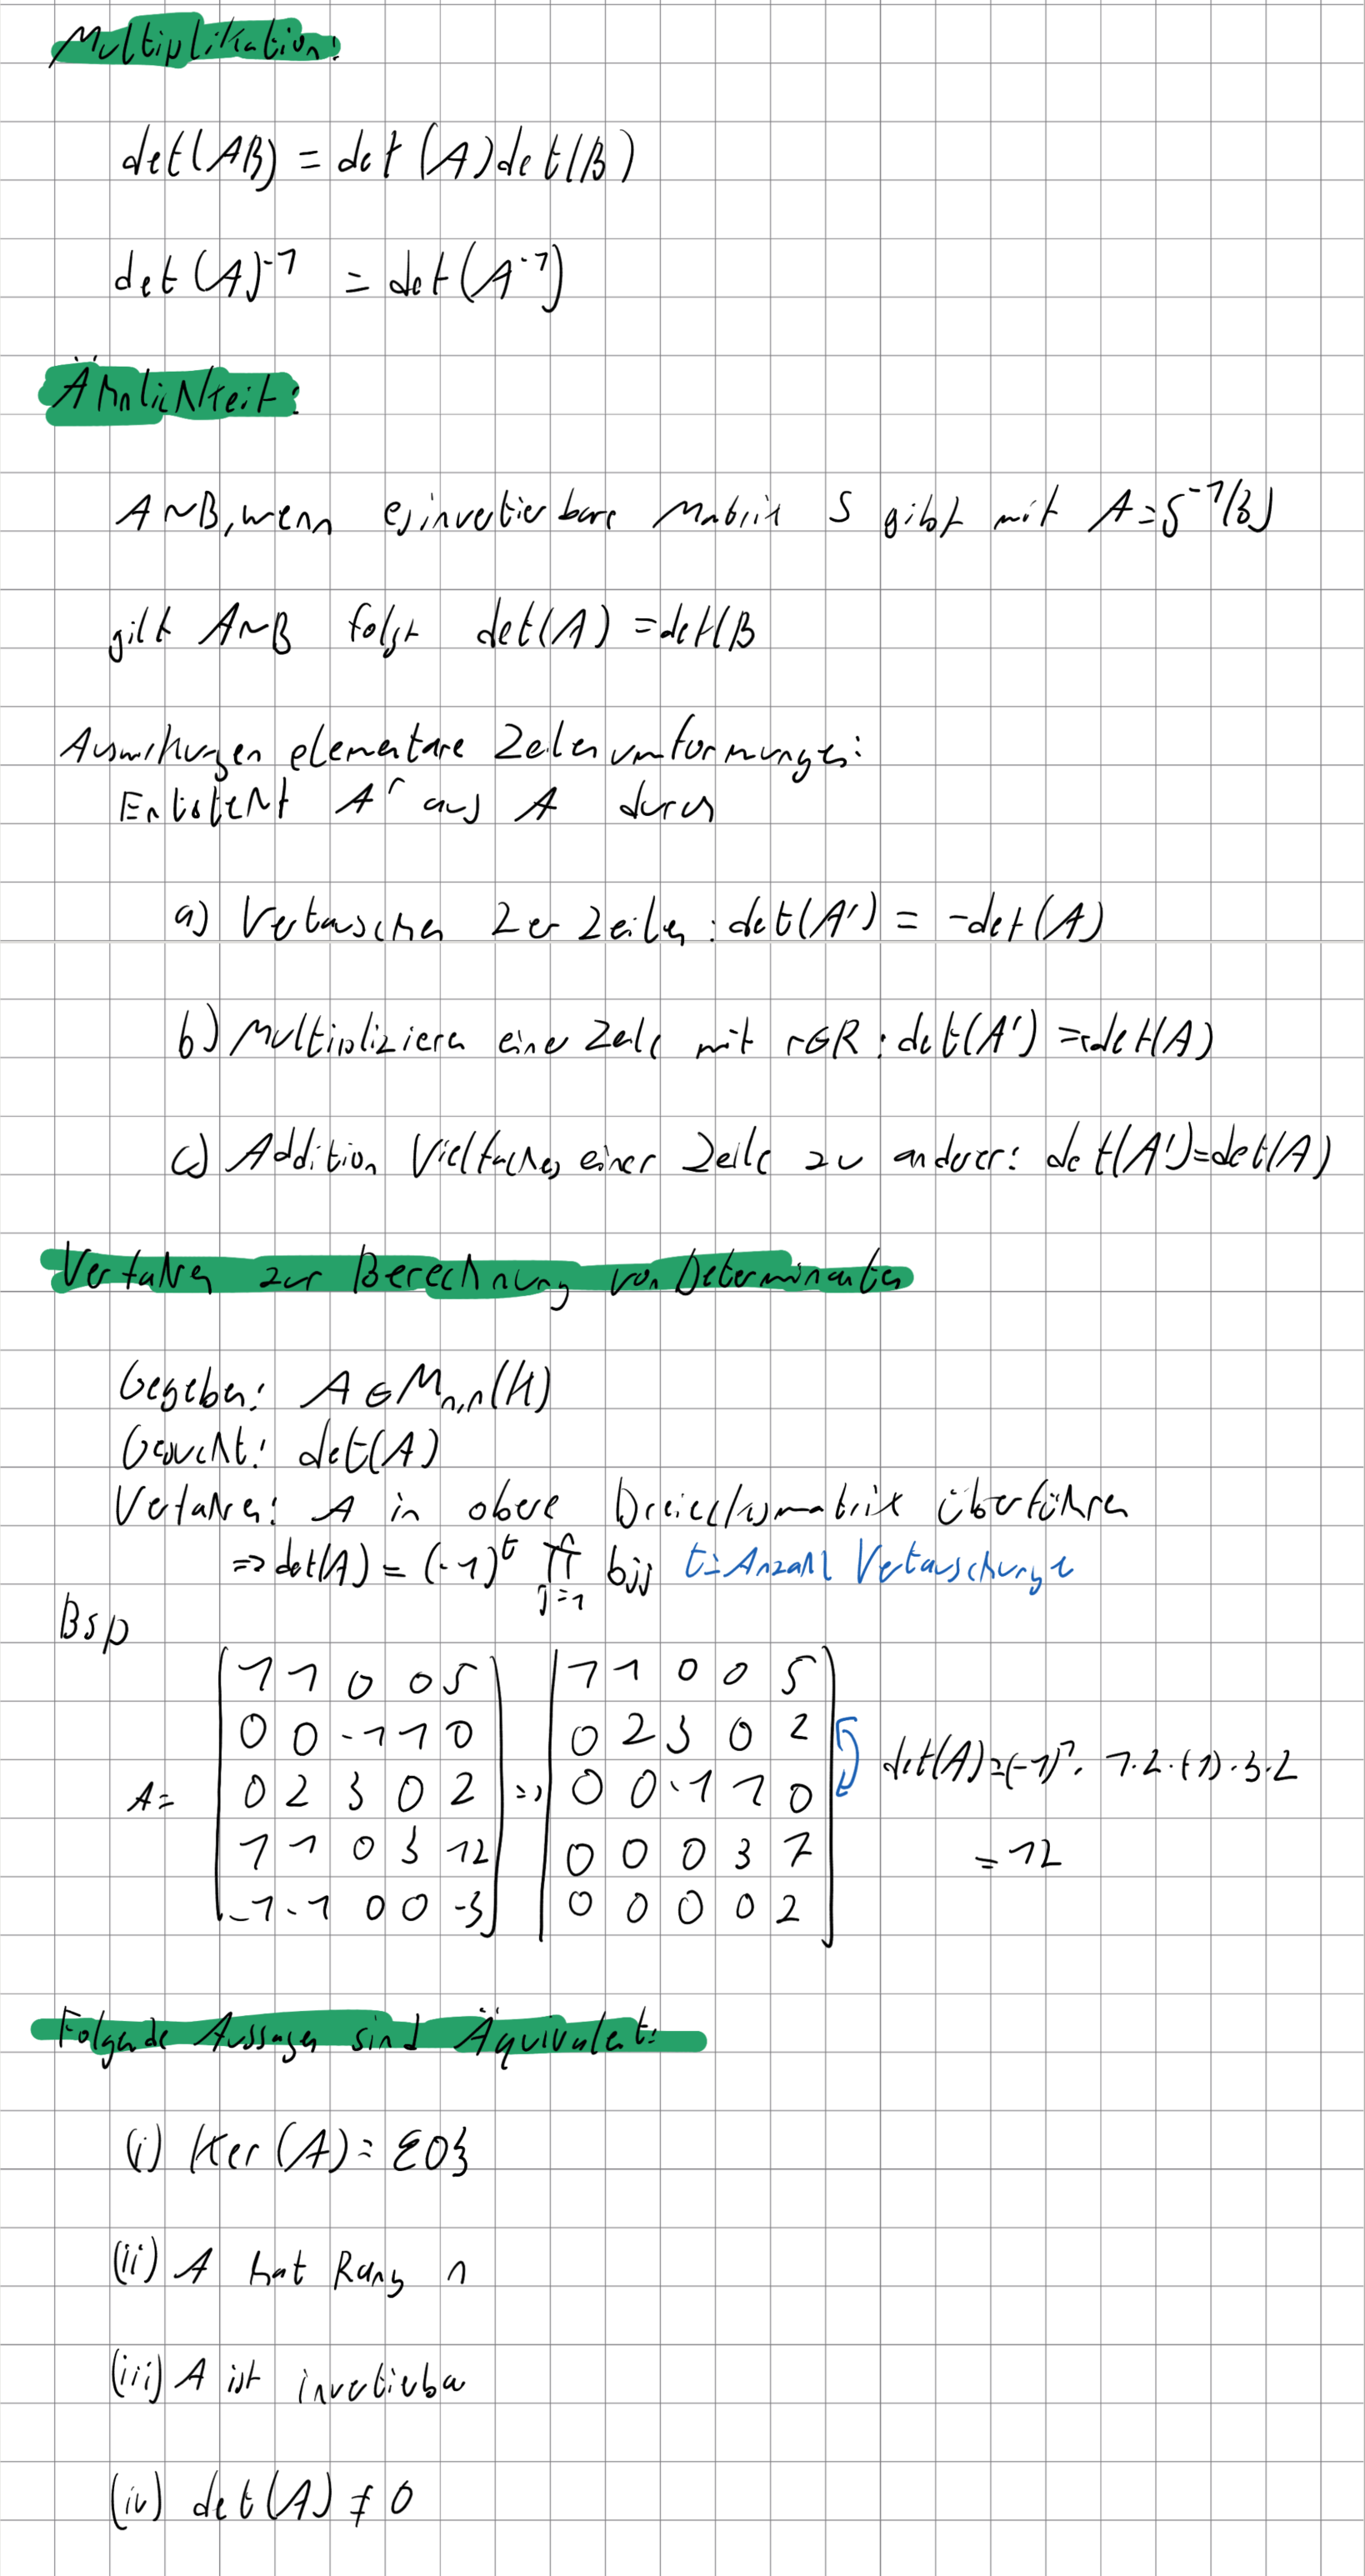 Multiplikation:
det(AB) = det(A)det(B)
det(A)⁻¹ = det(A⁻¹)
Ähnlichkeit:
A~B, wenn es invertierbare Matrix S gibt mit A=S⁻¹(B)
gilt A~B folgt det(A) = det(B
Auswirkungen elementare Zeilenumformungen:
Entsteht A' aus A durch
a) Vertauschen 2er Zeilen: det(A') = -det(A)
b) Multiplizieren einer Zeile mit r∈R: det(A') = r det(A)
c) Addition Vielfaches einer Zeile zu anderer: det(A')=det(A)
Verfahren zur Berechnung von Determinanten
Gegeben: A∈Mₙ,ₙ(K)
Gesucht: det(A)
Verfahren: A in obere Dreiecksmatrix überführen
=> det(A) = (-1)ᵗ ∏ⁿⱼ₌₁ bjj t=Anzahl Vertauschunge
Bsp
1 1 0 0 5 1 1 0 0 5
0 0 -1 1 0 0 2 3 0 2
A= 0 2 3 0 2 => 0 0 -1 1 0 det(A)=(-1)¹· 1·2·(-1)·3·2
1 1 0 3 12 0 0 0 3 7 = 12
-1 -1 0 0 -3 0 0 0 0 2
Folgende Aussagen sind Äquivalent:
(i) Ker(A) = {0}
(ii) A hat Rang n
(iii) A ist invertierba
(iv) det(A) ≠ 0